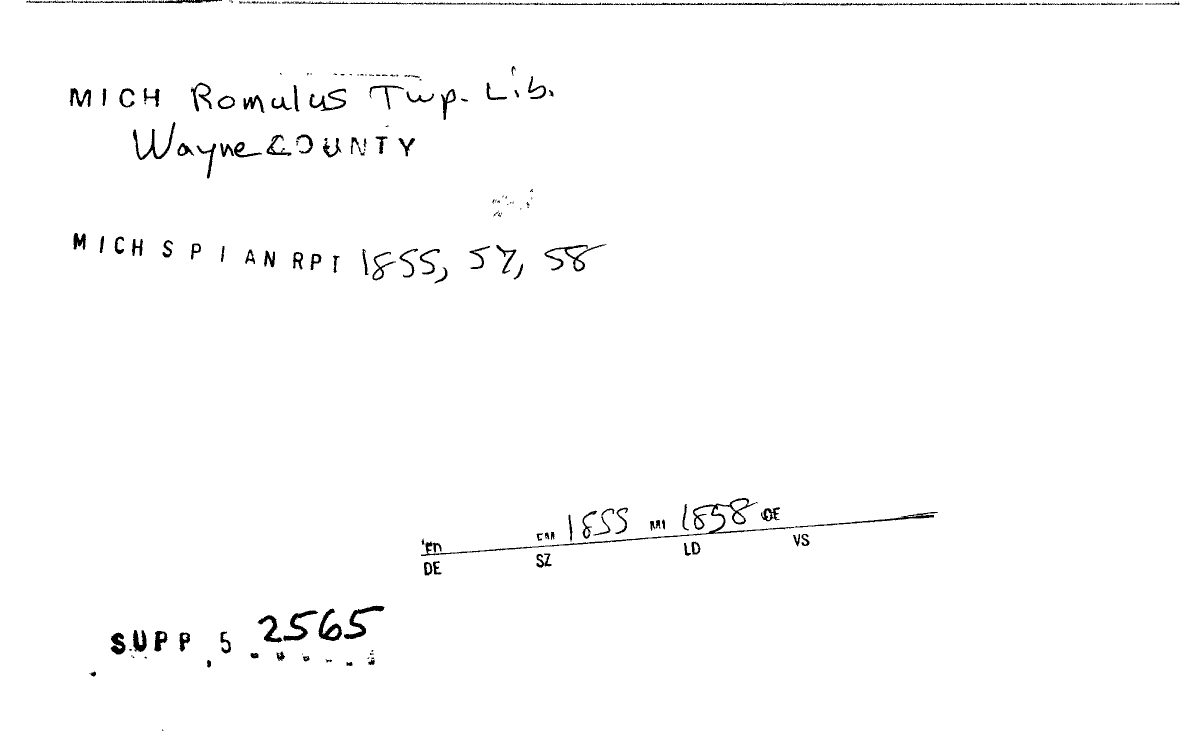 MICH Romulus Twp. Lib.
Wayne COUNTY
MICH S P I AN RPT 1855, 57, 58
1855 1858 DE
DE SZ LD VS
SUPP 5 2565